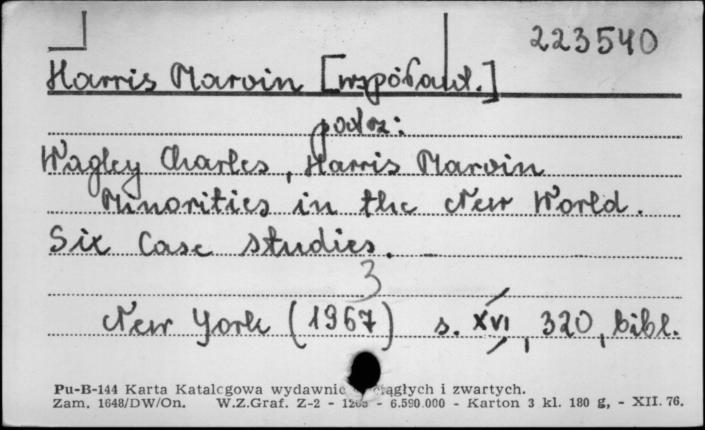 223540
Harris Marvin [współaut.]
podrz:
Wagley Charles, Harris Marvin
Minorities in the New World.
Six Case studies.
3
New York (1967) s. XVI, 320, bibl.
Pu-B-144 Karta Katalogowa wydawnic ciągłych i zwartych.
Zam. 1648/DW/On. W.Z.Graf. Z-2 - - 6.590.000 - Karton 3 kl. 180 g, - XII. 76.